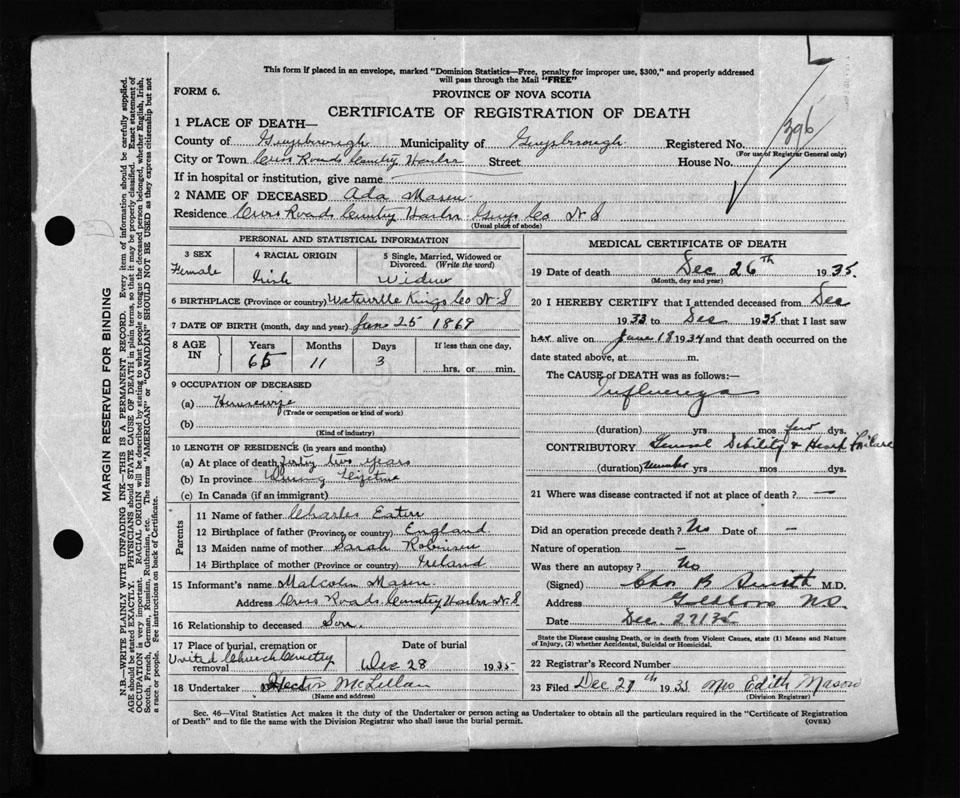 This form if placed in an envelope, marked "Dominion Statistics—Free, penalty for improper use, $300," and properly addressed
will pass through the Mail "FREE"
FORM 6.
PROVINCE OF NOVA SCOTIA
CERTIFICATE OF REGISTRATION OF DEATH
396
1 PLACE OF DEATH—
County of Guysborough Municipality of Guysborough Registered No.
(For use of Registrar General only)
City or Town Cross Roads Country Harbor Street House No.
If in hospital or institution, give name
2 NAME OF DECEASED Ada Mason
Residence Cross Roads Country Harbor Guys Co N S
(Usual place of abode)
PERSONAL AND STATISTICAL INFORMATION
3 SEX Female
4 RACIAL ORIGIN Irish
5 Single, Married, Widowed or Divorced. (Write the word) Widow
6 BIRTHPLACE (Province or country) Waterville Kings Co N S
7 DATE OF BIRTH (month, day and year) June 25 1869
8 AGE IN Years 65 Months 11 Days 3 If less than one day, hrs. or min.
9 OCCUPATION OF DECEASED
(a) Housewife
(Trade or occupation or kind of work)
(b)
(Kind of industry)
10 LENGTH OF RESIDENCE (in years and months)
(a) At place of death forty two years
(b) In province During lifetime
(c) In Canada (if an immigrant)
Parents
11 Name of father Charles Eaton
12 Birthplace of father (Province or country) England
13 Maiden name of mother Sarah Robinson
14 Birthplace of mother (Province or country) Ireland
15 Informant's name Malcolm Mason
Address Cross Roads Country Harbor N S
16 Relationship to deceased Son
17 Place of burial, cremation or removal United Church Cemetry
Date of burial Dec 28 1935
18 Undertaker Hector McLellan
(Name and address)
MEDICAL CERTIFICATE OF DEATH
19 Date of death Dec 26th 1935.
(Month, day and year)
20 I HEREBY CERTIFY that I attended deceased from Dec
1933 to Dec 1935 that I last saw
h er alive on June 18 1934 and that death occurred on the
date stated above, at m.
The CAUSE of DEATH was as follows:—
Influenza
(duration) yrs mos few dys.
CONTRIBUTORY General Debility & Heart Failure
(duration) Number yrs mos dys.
21 Where was disease contracted if not at place of death? —
Did an operation precede death? No Date of —
Nature of operation —
Was there an autopsy? No
(Signed) Chas B Smith M.D.
Address Goldboro N.S.
Date Dec. 27/35
State the Disease causing Death, or in death from Violent Causes, state (1) Means and Nature
of Injury, (2) whether Accidental, Suicidal or Homicidal.
22 Registrar's Record Number
23 Filed Dec 27th 1935 Mrs Edith Mason
(Division Registrar)
Sec. 46—Vital Statistics Act makes it the duty of the Undertaker or person acting as Undertaker to obtain all the particulars required in the "Certificate of Registration
of Death" and to file the same with the Division Registrar who shall issue the burial permit.
(OVER)
MARGIN RESERVED FOR BINDING
N.B.—WRITE PLAINLY WITH UNFADING INK—THIS IS A PERMANENT RECORD. Every item of information should be carefully supplied.
AGE should be stated EXACTLY. PHYSICIANS should STATE CAUSE OF DEATH in plain terms, so that it may be properly classified. Exact statement of
OCCUPATION is very important. RACIAL ORIGIN will be described by stating to what people or tongue the deceased person belonged, whether English, Irish,
Scotch, French, German, Russian, Ruthenian, etc. The terms "AMERICAN" or "CANADIAN" SHOULD NOT BE USED as they express citizenship but not
a race or people. See instructions on back of Certificate.